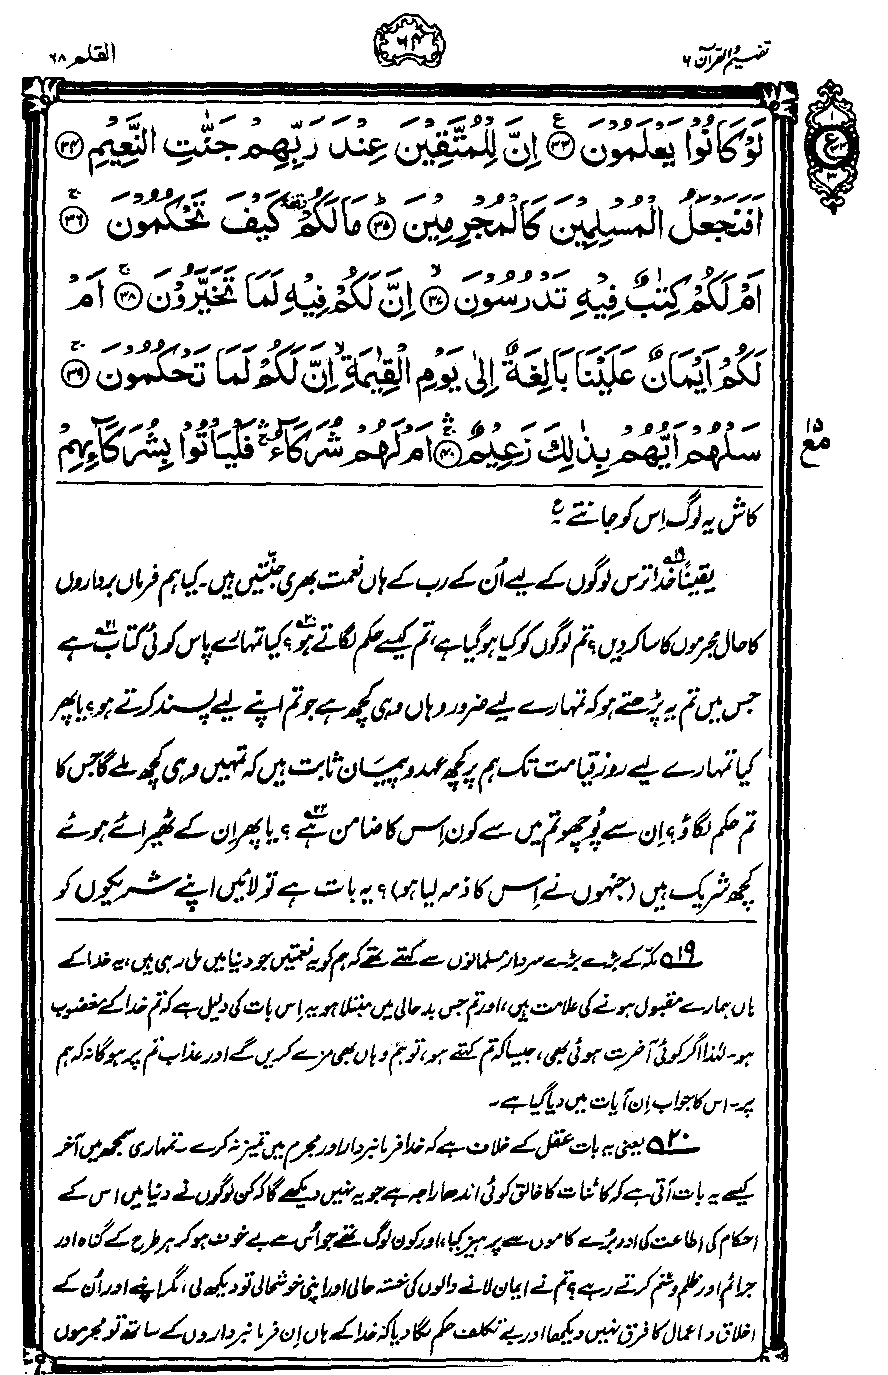 تفہیم القرآن ۶
۶۴
القلم ۶۸
لَوْ كَانُوْا يَعْلَمُوْنَ ﴿۳۳﴾ اِنَّ لِلْمُتَّقِيْنَ عِنْدَ رَبِّهِمْ جَنّٰتِ النَّعِيْمِ ﴿۳۴﴾
اَفَنَجْعَلُ الْمُسْلِمِيْنَ كَالْمُجْرِمِيْنَ ﴿۳۵﴾ مَا لَكُمْ كَيْفَ تَحْكُمُوْنَ ﴿۳۶﴾
اَمْ لَكُمْ كِتٰبٌ فِيْهِ تَدْرُسُوْنَ ﴿۳۷﴾ اِنَّ لَكُمْ فِيْهِ لَمَا تَخَيَّرُوْنَ ﴿۳۸﴾ اَمْ
لَكُمْ اَيْمَانٌ عَلَيْنَا بَالِغَةٌ اِلٰى يَوْمِ الْقِيٰمَةِ اِنَّ لَكُمْ لَمَا تَحْكُمُوْنَ ﴿۳۹﴾
سَلْهُمْ اَيُّهُمْ بِذٰلِكَ زَعِيْمٌ ﴿۴۰﴾ اَمْ لَهُمْ شُرَكَآءُ فَلْيَاْتُوْا بِشُرَكَآئِهِمْ
۱۵
مع
کاش یہ لوگ اِس کو جانتے ع
یقیناً۱۹ خدا ترس لوگوں کے لیے اُن کے رب کے ہاں نعمت بھری جنتیں ہیں۔ کیا ہم فرماں برداروں
کا حال مجرموں کا سا کر دیں؟ تم لوگوں کو کیا ہو گیا ہے، تم کیسے حکم لگاتے ہو۲۰؟ کیا تمہارے پاس کوئی کتاب۲۱ ہے
جس میں تم یہ پڑھتے ہو کہ تمہارے لیے ضرور وہاں وہی کچھ ہے جو تم اپنے لیے پسند کرتے ہو؟ یا پھر
کیا تمہارے لیے روز قیامت تک ہم پر کچھ عہد و پیمان ثابت ہیں کہ تمہیں وہی کچھ ملے گا جس کا
تم حکم لگاؤ؟ اِن سے پُوچھو تم میں سے کون اِس کا ضامن ہے۲۲؟ یا پھر اِن کے ٹھیرائے ہوئے
کچھ شریک ہیں (جنہوں نے اِس کا ذمہ لیا ہو)؟ یہ بات ہے تو لائیں اپنے شریکوں کو
۱۹ مکہ کے بڑے بڑے سردار مسلمانوں سے کہتے تھے کہ ہم کو یہ نعمتیں جو دنیا میں مل رہی ہیں، یہ خدا کے
ہاں ہمارے مقبول ہونے کی علامت ہیں، اور تم جس بد حالی میں مبتلا ہو یہ اِس بات کی دلیل ہے کہ تم خدا کے مغضوب
ہو۔ لہٰذا اگر کوئی آخرت ہوئی بھی، جیسا کہ تم کہتے ہو، تو ہم وہاں بھی مزے کریں گے اور عذاب تم پر ہو گا نہ کہ ہم
پر۔ اس کا جواب اِن آیات میں دیا گیا ہے۔
۲۰ یعنی یہ بات عقل کے خلاف ہے کہ خدا فرمانبردار اور مجرم میں تمیز نہ کرے۔ تمہاری سمجھ میں آخر
کیسے یہ بات آتی ہے کہ کائنات کا خالق کوئی اندھا راجہ ہے جو یہ نہیں دیکھے گا کہ کن لوگوں نے دنیا میں اس کے
احکام کی اطاعت کی اور بُرے کاموں سے پرہیز کیا، اور کون لوگ تھے جو اس سے بے خوف ہو کر ہر طرح کے گناہ اور
جرائم اور ظلم و ستم کرتے رہے؟ تم نے ایمان لانے والوں کی خستہ حالی اور اپنی خوشحالی تو دیکھ لی، مگر اپنے اور اُن کے
اخلاق و اعمال کا فرق نہیں دیکھا اور بے تکلف حکم لگا دیا کہ خدا کے ہاں اِن فرمانبرداروں کے ساتھ تو مجرموں